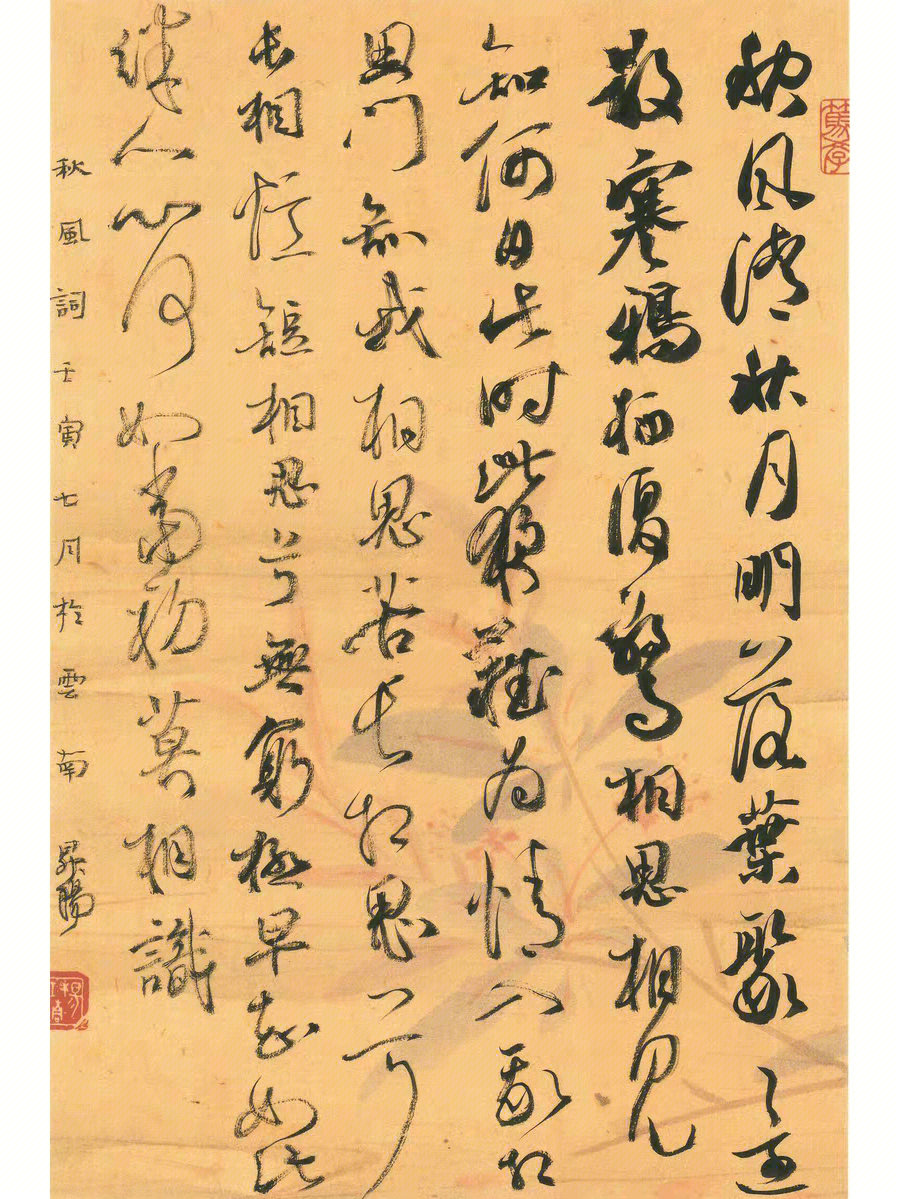 秋風清秋月明落葉聚還
散寒鴉栖復驚相思相見
知何日此时此夜難为情入我相
思門知我相思苦長相思兮
長相憶短相思兮無窮極早知如此
絆人心何如當初莫相識
秋風詞壬寅七月於雲南